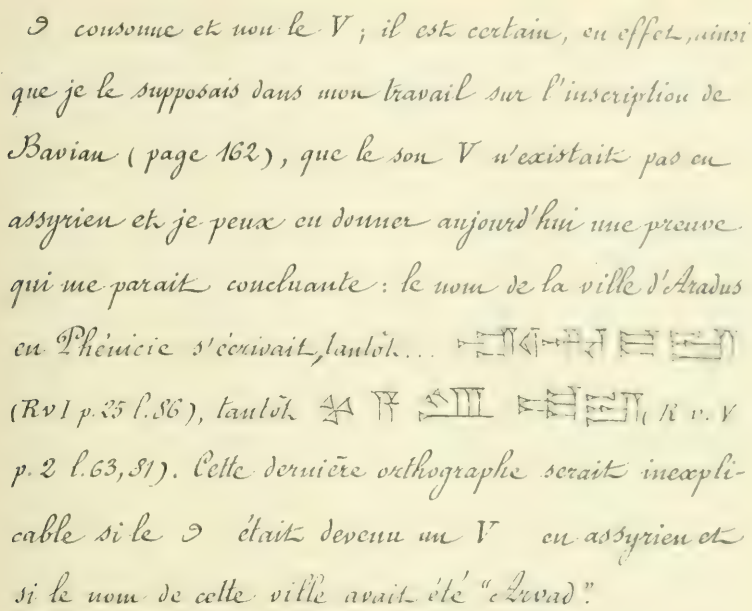 و consonne et non le V ; il est certain, en effet, ainsi
que je le supposais dans mon travail sur l'inscription de
Bavian (page 162), que le son V n'existait pas en
assyrien et je peux en donner aujourd'hui une preuve
qui me parait concluante : le nom de la ville d'Aradus
en Phénicie s'écrivait, tantôt...
(R v I p. 25 l. 86), tantôt (R v. V
p. 2 l. 63, 81). Cette dernière orthographe serait inexpli-
cable si le و était devenu un V en assyrien et
si le nom de cette ville avait été "Arvad".